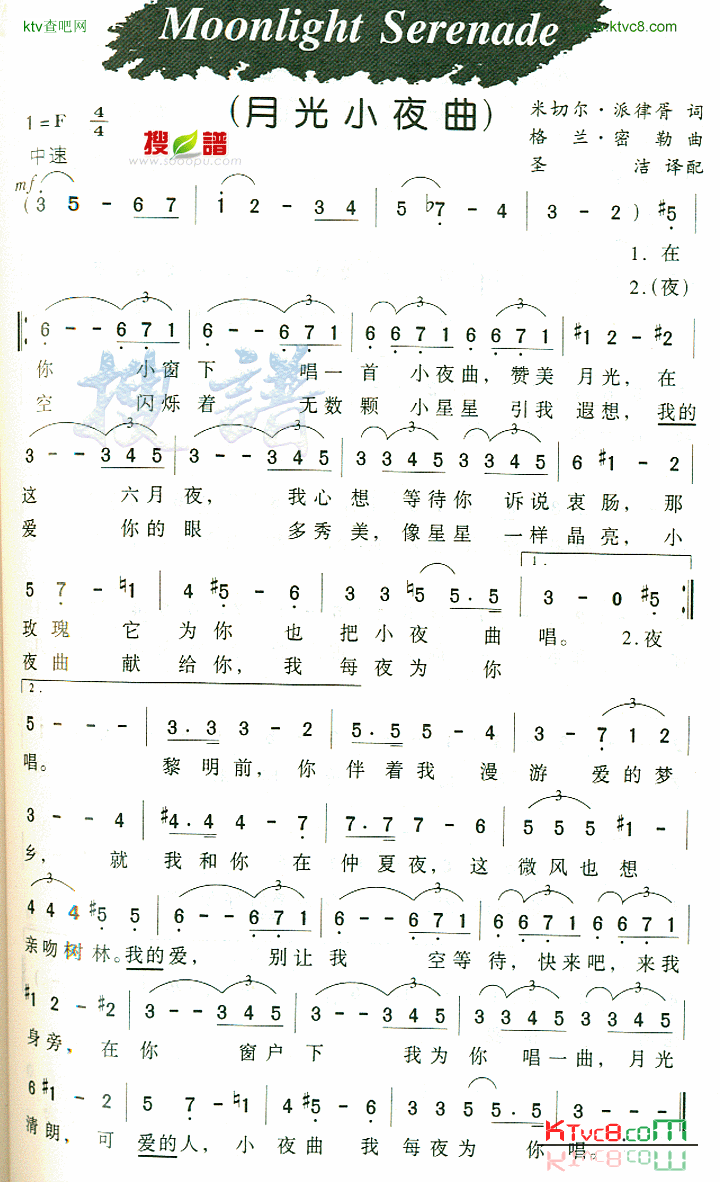 ktv查吧网
ktvc8.com
Moonlight Serenade
(月光小夜曲)
1=F 4/4
中速
米切尔·派律胥 词
格兰·密勒 曲
圣洁 译配
搜谱
www.sooopu.com
mf
(3 5 - 6 7 | i 2 - 3 4 | 5 ♭7 - 4 | 3 - 2 ) #5 |
1.在
2.(夜)
6 - - 6 7 1 | 6 - - 6 7 1 | 6 6 7 1 6 6 7 1 | #1 2 - #2 |
你 小窗下 唱一首 小夜曲，赞美 月光，在
空 闪烁着 无数颗 小星星 引我 遐想，我的
搜谱
3 - - 3 4 5 | 3 - - 3 4 5 | 3 3 4 5 3 3 4 5 | 6 #1 - 2 |
这 六月夜， 我心想 等待你 诉说 衷肠，那
爱 你的眼 多秀美，像星星 一样 晶亮，小
1.
5 7 - ♮1 | 4 #5 - 6 | 3 3 ♮5 5.5 | 3 - 0 #5 :|
玫瑰 它 为你 也 把小夜 曲 唱。 2.夜
夜曲 献 给你，我 每夜为 你
2.
5 - - - | 3.3 3 - 2 | 5.5 5 - 1 | 3 - 7 1 2 |
唱。 黎明前，你 伴着我 漫游 爱的梦
3 - - 4 | #4.4 4 - 7 | 7.7 7 - 6 | 5 5 5 #1 - |
乡，就 我和你 在 仲夏夜，这 微风也想
4 4 4 #5 5 | 6 - - 6 7 1 | 6 - - 6 7 1 | 6 6 7 1 6 6 7 1 |
亲吻树林。我的爱， 别让我 空等待，快来吧，来我
#1 2 - #2 | 3 - - 3 4 5 | 3 - - 3 4 5 | 3 3 4 5 3 3 4 5 |
身旁，在你 窗户下 我为你 唱一曲，月光
6 #1 - 2 | 5 7 - ♮1 | 4 #5 - 6 | 3 3 5 5.5 | 3 - - ||
清朗，可 爱的人，小 夜曲 我 每夜为 你 唱。
KTvc8.com